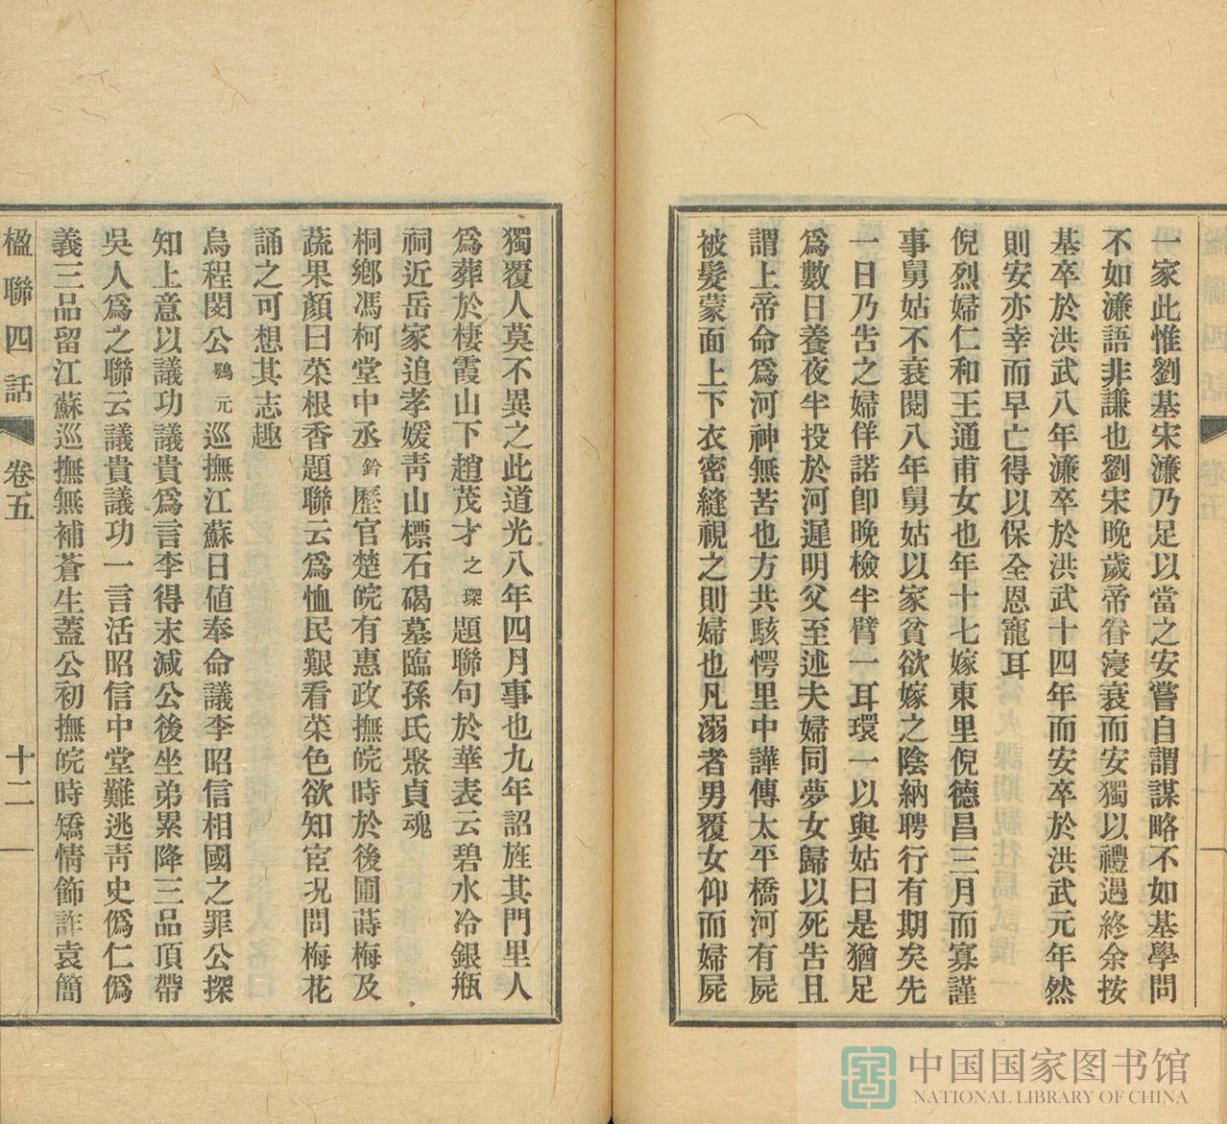 一家此惟劉基宋濂乃足以當之安嘗自謂謀略不如基學問
不如濂語非謙也劉宋晚歲帝眷寖衰而安獨以禮遇終余按
基卒於洪武八年濂卒於洪武十四年而安卒於洪武元年然
則安亦幸而早亡得以保全恩寵耳
倪烈婦仁和王通甫女也年十七嫁東里倪德昌三月而寡謹
事舅姑不衰閱八年舅姑以家貧欲嫁之陰納聘行有期矣先
一日乃告之婦佯諾卽晚檢半臂一耳環一以與姑曰是猶足
爲數日養夜半投於河遲明父至述夫婦同夢女歸以死告且
謂上帝命爲河神無苦也方共駭愕里中譁傳太平橋河有屍
被髮蒙面上下衣密縫視之則婦也凡溺者男覆女仰而婦屍
獨覆人莫不異之此道光八年四月事也九年詔旌其門里人
爲葬於棲霞山下趙茂才之琛題聯句於華表云碧水冷銀瓶
祠近岳家追孝媛靑山標石碣墓臨孫氏聚貞魂
桐鄉馮柯堂中丞鈐歷官楚皖有惠政撫皖時於後圃蒔梅及
蔬果顏曰菜根香題聯云爲恤民艱看菜色欲知宦况問梅花
誦之可想其志趣
烏程閔公鶚元巡撫江蘇日値奉命議李昭信相國之罪公探
知上意以議功議貴爲言李得末減公後坐弟累降三品頂帶
吳人爲之聯云議貴議功一言活昭信中堂難逃靑史僞仁僞
義三品留江蘇巡撫無補蒼生蓋公初撫皖時矯情飾詐袁簡
楹聯四話 卷五 十二
中国国家图书馆
NATIONAL LIBRARY OF CHINA